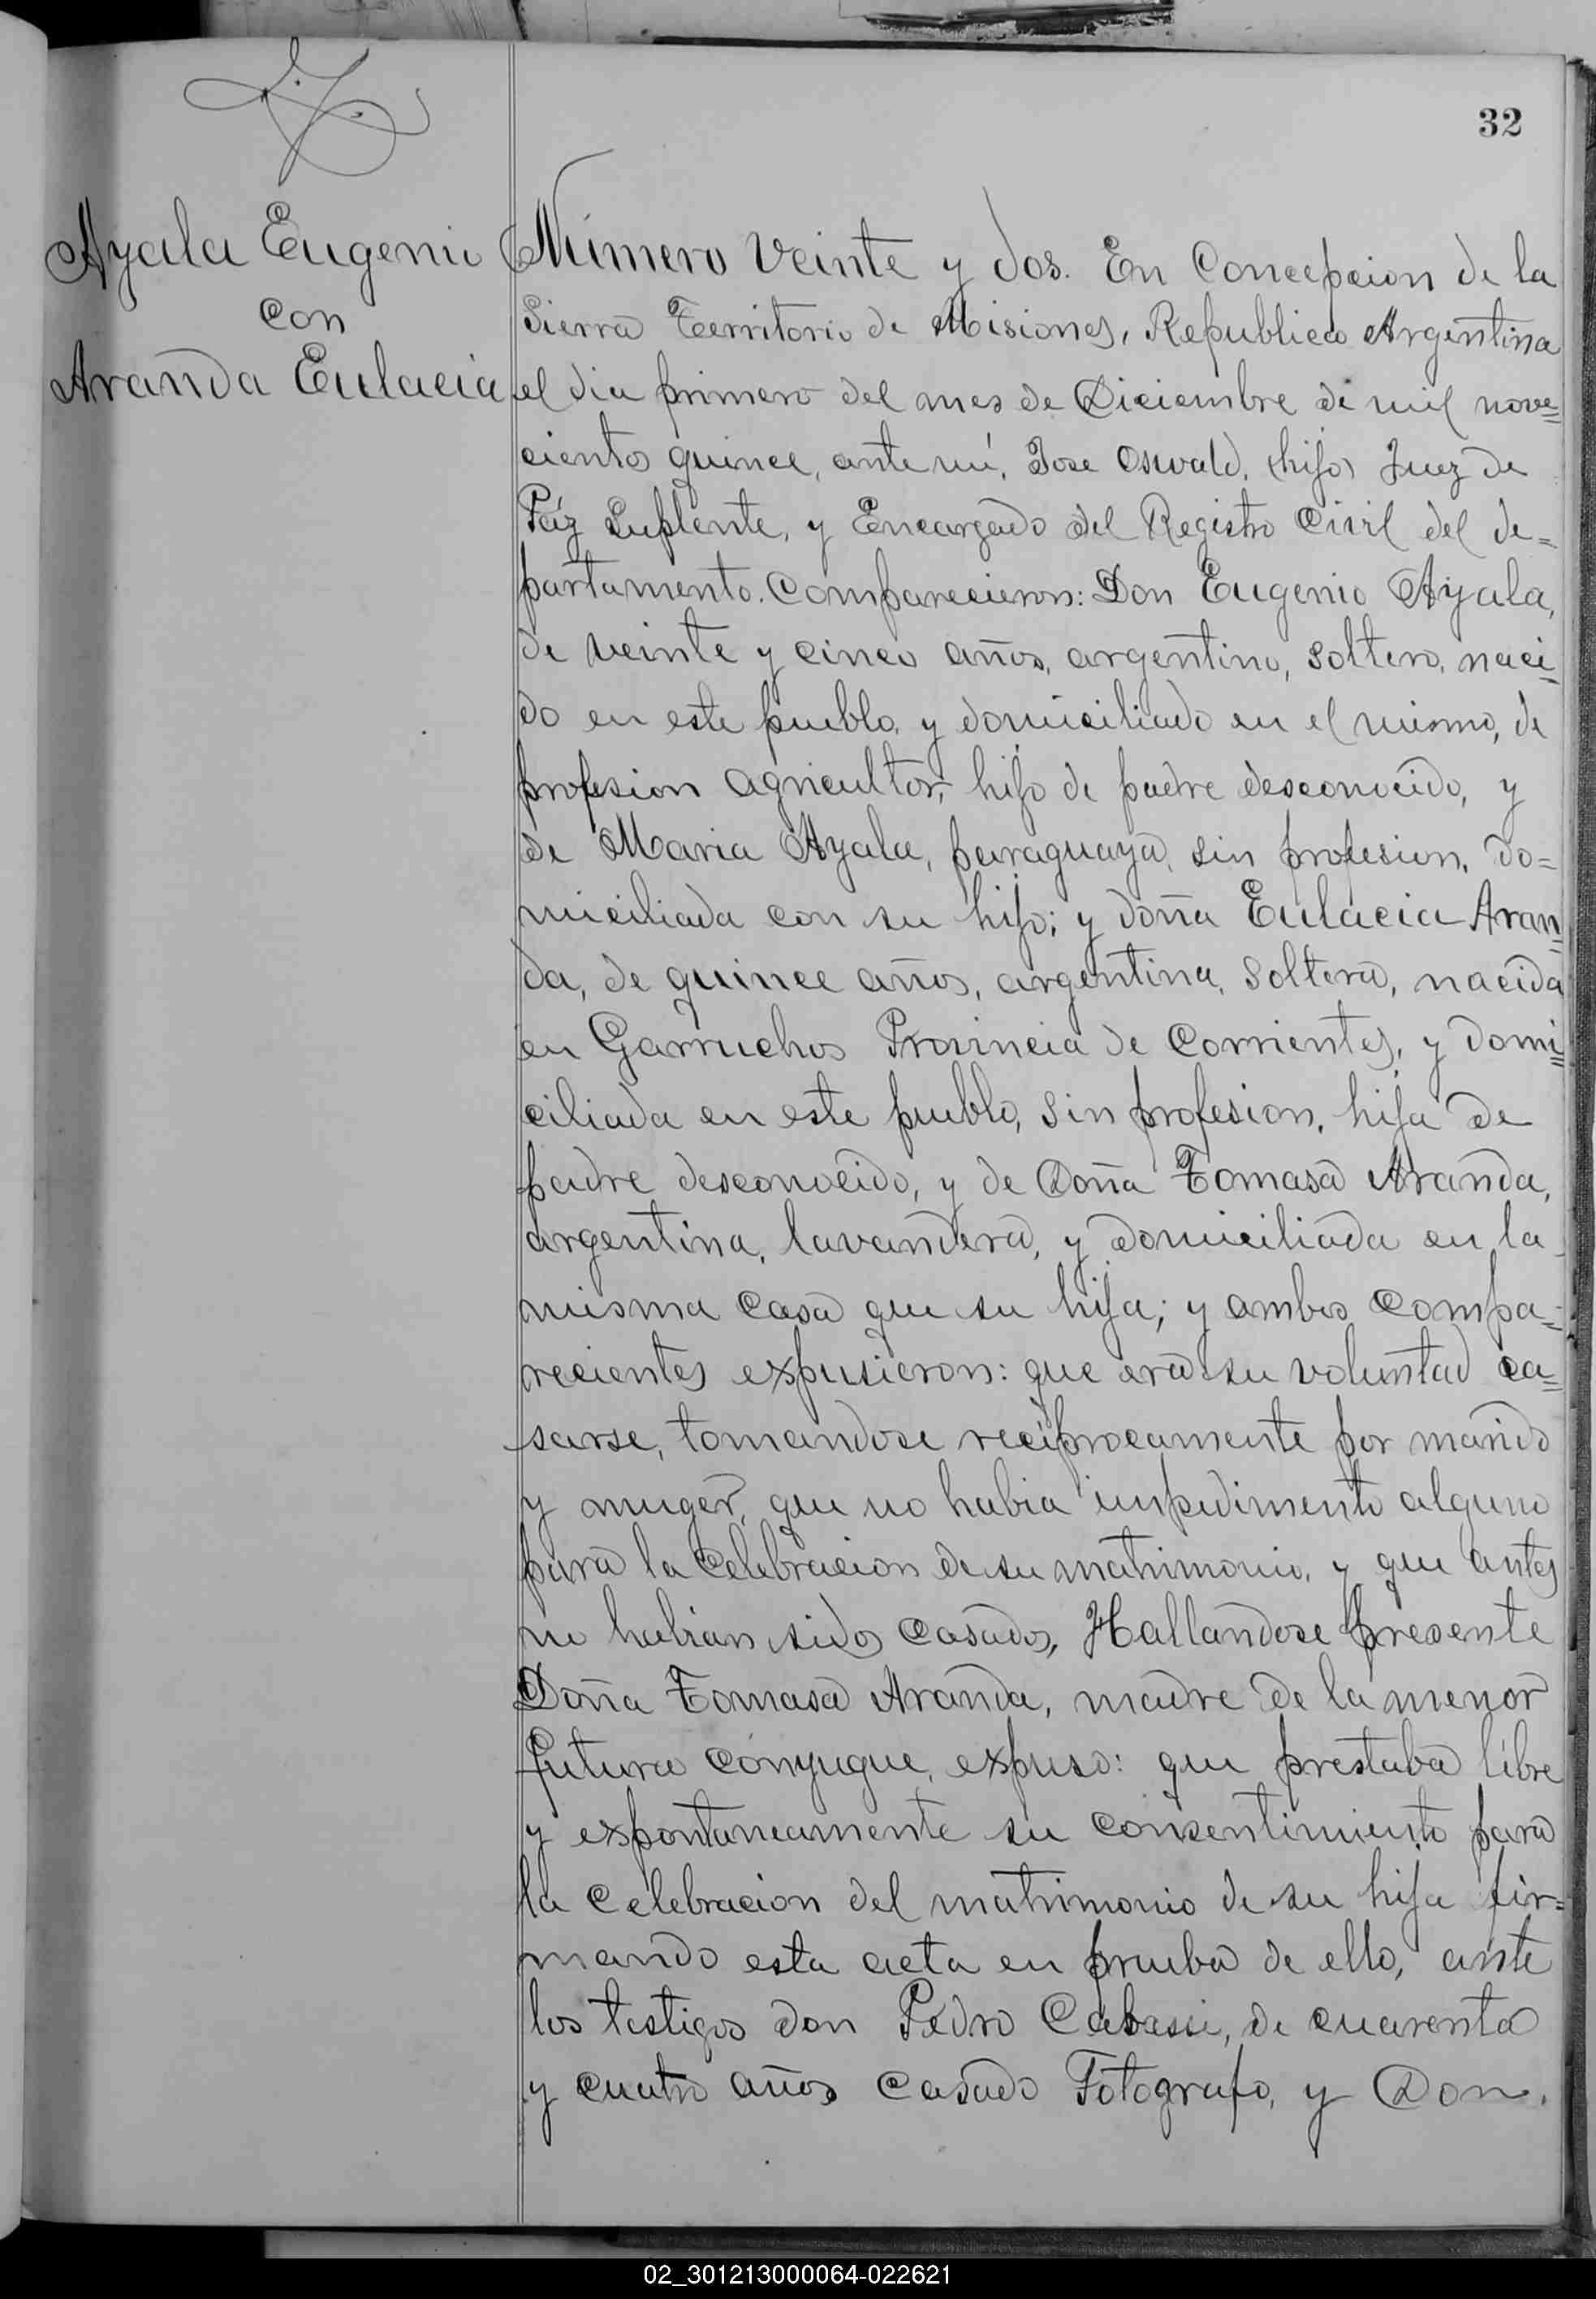 32
Ayala Eugenio
con
Aranda Eulacia
Número veinte y dos. En Concepcion de la
Sierra Territorio de Misiones, Republica Argentina
el dia primero del mes de Diciembre de mil nove=
cientos quince, ante mí, Jose Oswald, (hijo) Juez de
Páz Suplente, y Encargado del Registro Civil del de=
partamento. Comparecieron: Don Eugenio Ayala,
de veinte y cinco años, argentino, soltero, naci=
do en este pueblo, y domiciliado en el mismo, de
profesion agricultor, hijo de padre desconocido, y
de Maria Ayala, paraguaya, sin profesion, do=
miciliada con su hijo; y doña Eulacia Aran=
da, de quince años, argentina, soltera, nacida
en Garruchos Provincia de Corrientes, y domi=
ciliada en este pueblo, sin profesion, hija de
padre desconocido, y de Doña Tomasa Aranda,
argentina, lavandera, y domiciliada en la
misma casa que su hija; y ambos compa=
recientes expusieron: que era su voluntad ca=
sarse, tomandose reciprocamente por marido
y muger, que no habia impedimento alguno
para la celebracion de su matrimonio, y que antes
no habian sidos casados, Hallandose presente
Doña Tomasa Aranda, madre de la menor
futura cónyugue, expuso: que prestaba libre
y expontaneamente su consentimiento para
la celebracion del matrimonio de su hija fir=
mando esta acta en prueba de ello, ante
los testigos don Pedro Cabassi, de cuarenta
y cuatro años casado Fotografo, y Don.
02_301213000064-022621